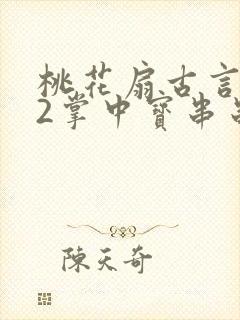 桃花扇古言
2掌中寳串
陳天奇